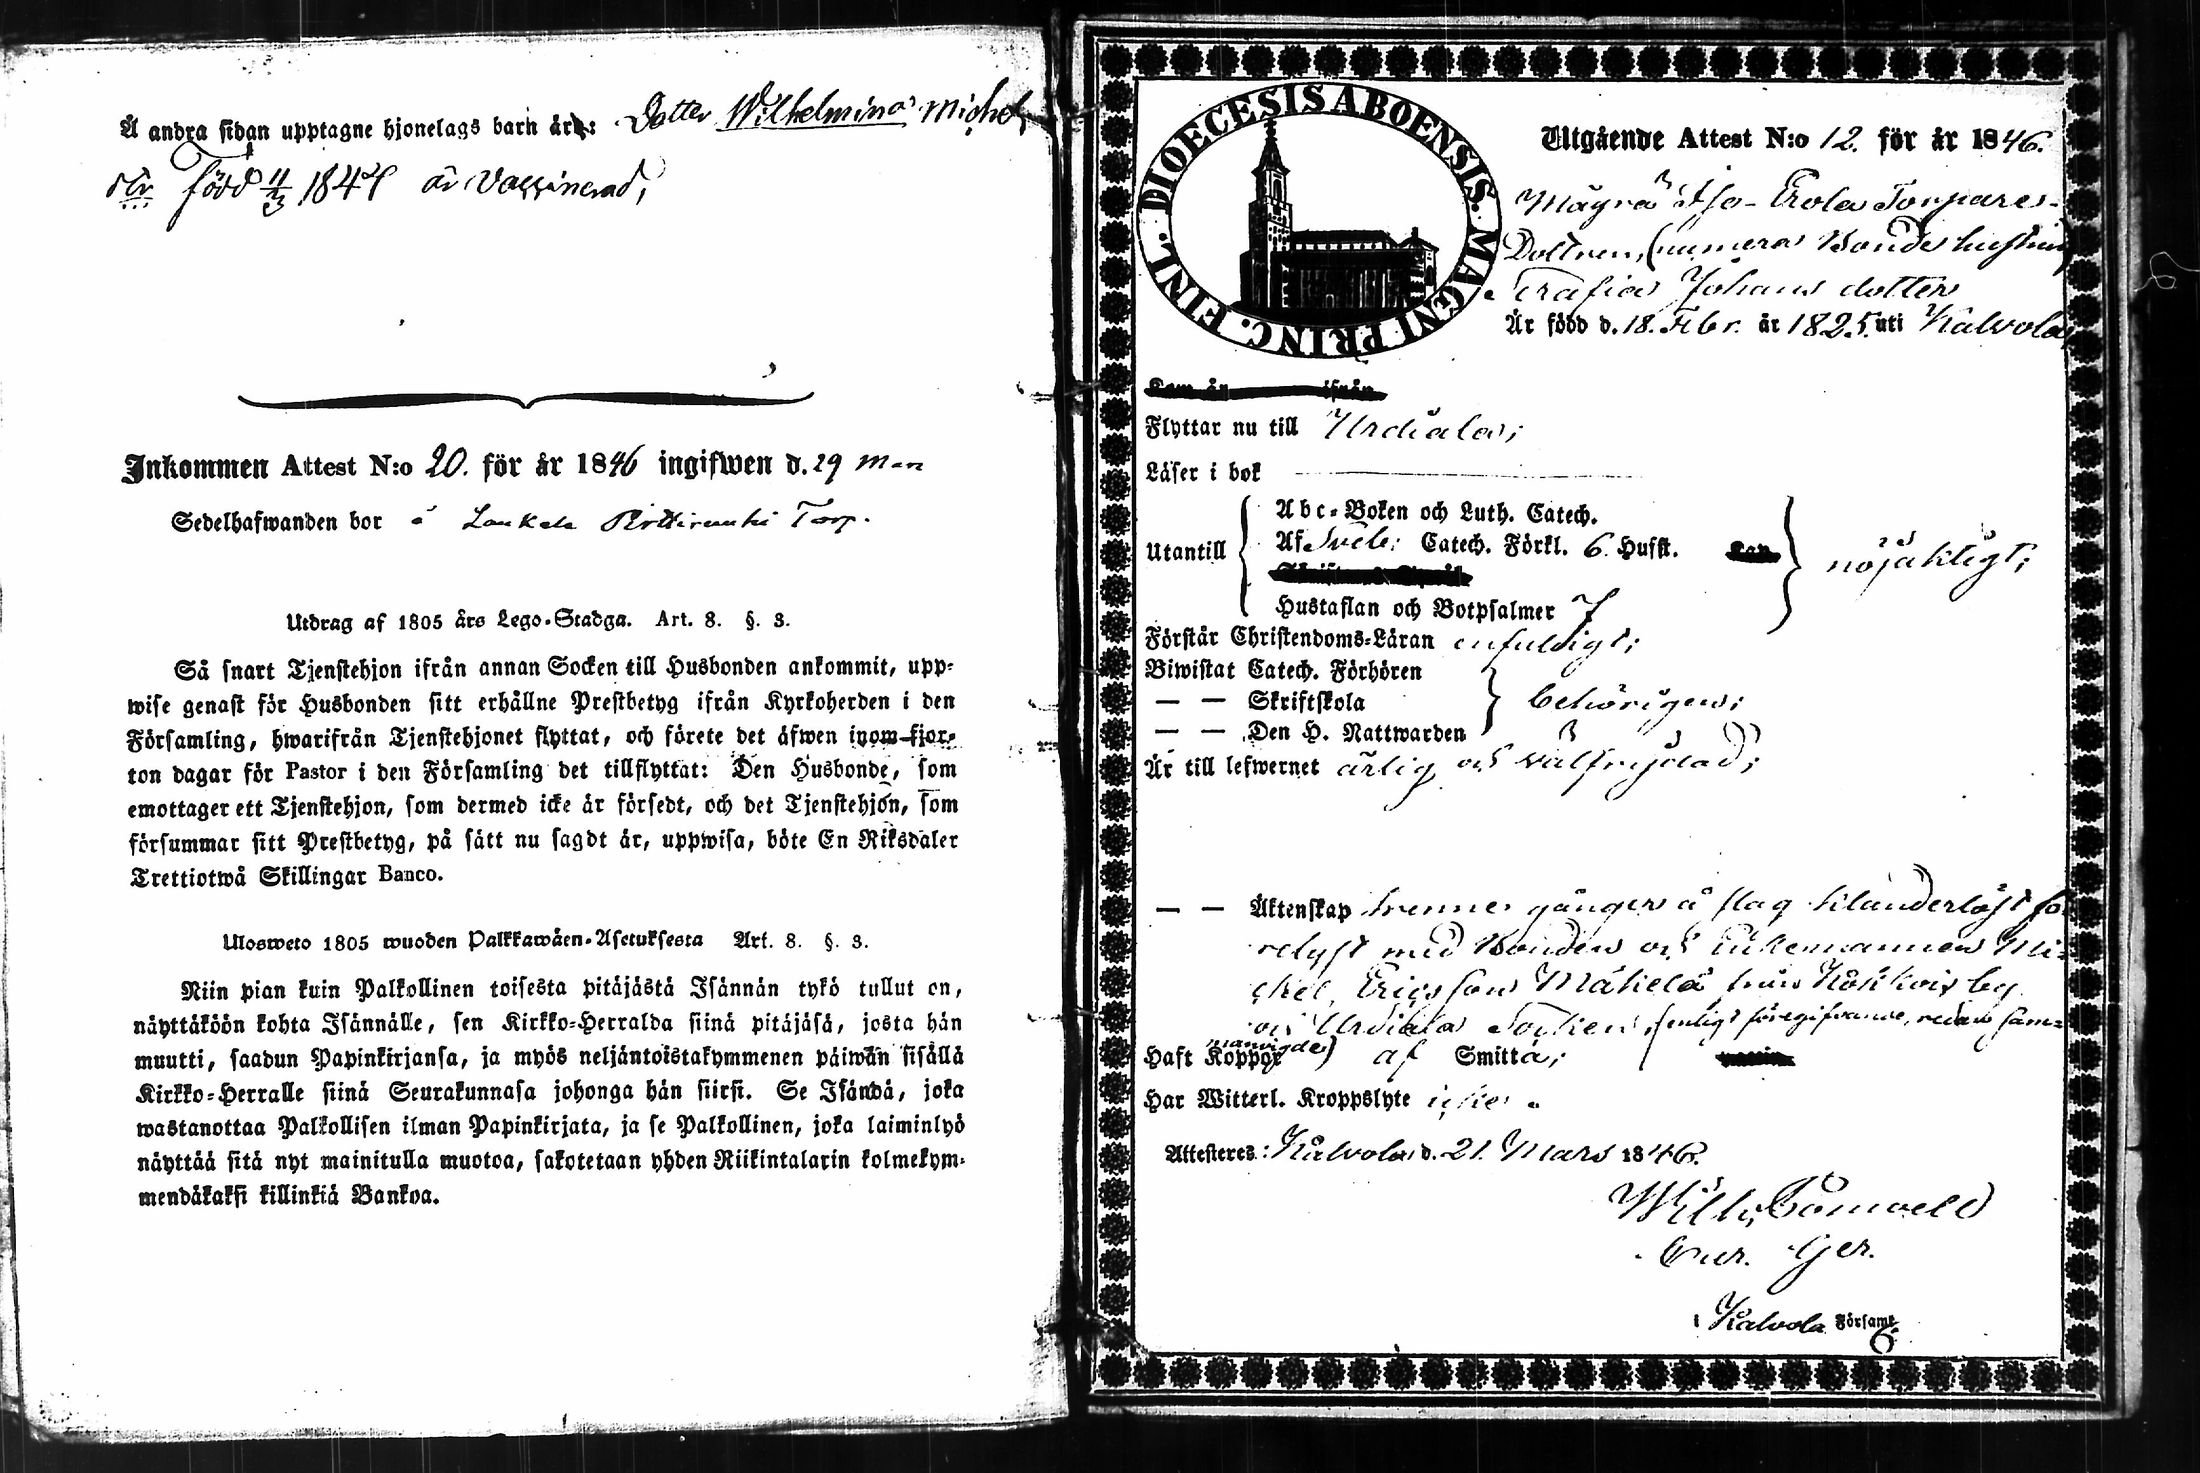 Å andra sidan upptagne hjonelags barn är: Dotter Wilhelmina Michels
dtr Född 11/3 184 är Vaccinerad;
Inkommen Attest N:o 20. för år 1846 ingifwen d. 29 Mars
Sedelhafwanden bor å Torp.
Utdrag af 1805 års Lego-Stadga. Art. 8. §. 3.
Så snart Tjenstehjon ifrån annan Socken till Husbonden ankommit, upp-
wise genast för Husbonden sitt erhållne Prestbetyg ifrån Kyrkoherden i den
Församling, hwarifrån Tjenstehjonet flyttat, och förete det äfwen inom fjor-
ton dagar för Pastor i den Församling det tillflyttat: Den Husbonde, som
emottager ett Tjenstehjon, som dermed icke är försedt, och det Tjenstehjon, som
försummar sitt Prestbetyg, på sätt nu sagdt är, uppwisa, böte En Riksdaler
Trettiotwå Skillingar Banco.
Ulosweto 1805 wuoden Palkkawäen-Asetuksesta Art. 8. §. 3.
Niin pian kuin Palkollinen toisesta pitäjästä Isännän tykö tullut on,
näyttäköön kohta Isännälle, sen Kirkko-Herralda siinä pitäjäsä, josta hän
muutti, saadun Papinkirjansa, ja myös neljäntoistakymmenen päiwän sisällä
Kirkko-Herralle siinä Seurakunnasa johonga hän siirsi. Se Isändä, joka
wastanottaa Palkollisen ilman Papinkirjata, ja se Palkollinen, joka laiminlyö
näyttää sitä nyt mainitulla muotoa, sakotetaan yhden Riikintalarin kolmekym-
mendäkaksi killinkiä Bankoa.
DIOECESIS ABOENSIS. MAGNI PRINC. FINL.
Utgående Attest N:o 12. för år 1846.
Mäyrä Iso-Erola Torpares-
Dottren, (numera Bonde hustrun)
Serafia Johans dotter
Är född d. 18. Febr. år 1825. uti Kalvola,
Kom år ifrån
Flyttar nu till Urdiala;
Läser i bok
Utantill
Abc-Boken och Luth. Catech.
Af Sveb: Catech. Förkl. 6. Hufst.
Hustaflan och Botpsalmer 7
nöjaktigt;
Förstår Christendoms-Läran enfaldigt;
Biwistat Catech. Förhören
— — Skriftskola
— — Den H. Nattwarden
behörigen;
Är till lefwernet ärlig och välfrejdad;
— — Äktenskap trenne gånger å slag klanderlöst fö-
relyst med Bonden och Enkemannen Mi-
chel Ericsson Mäkelä från by
och Urdiala Socken, (enligt föregifvande, redan sam-
manvigde)
Haft Koppor af Smitta;
Har Witterl. Kroppslyte icke.
Attesteres: Kalvola d. 21. Mars 1846.
Wilh.
i Kalvola Församl.